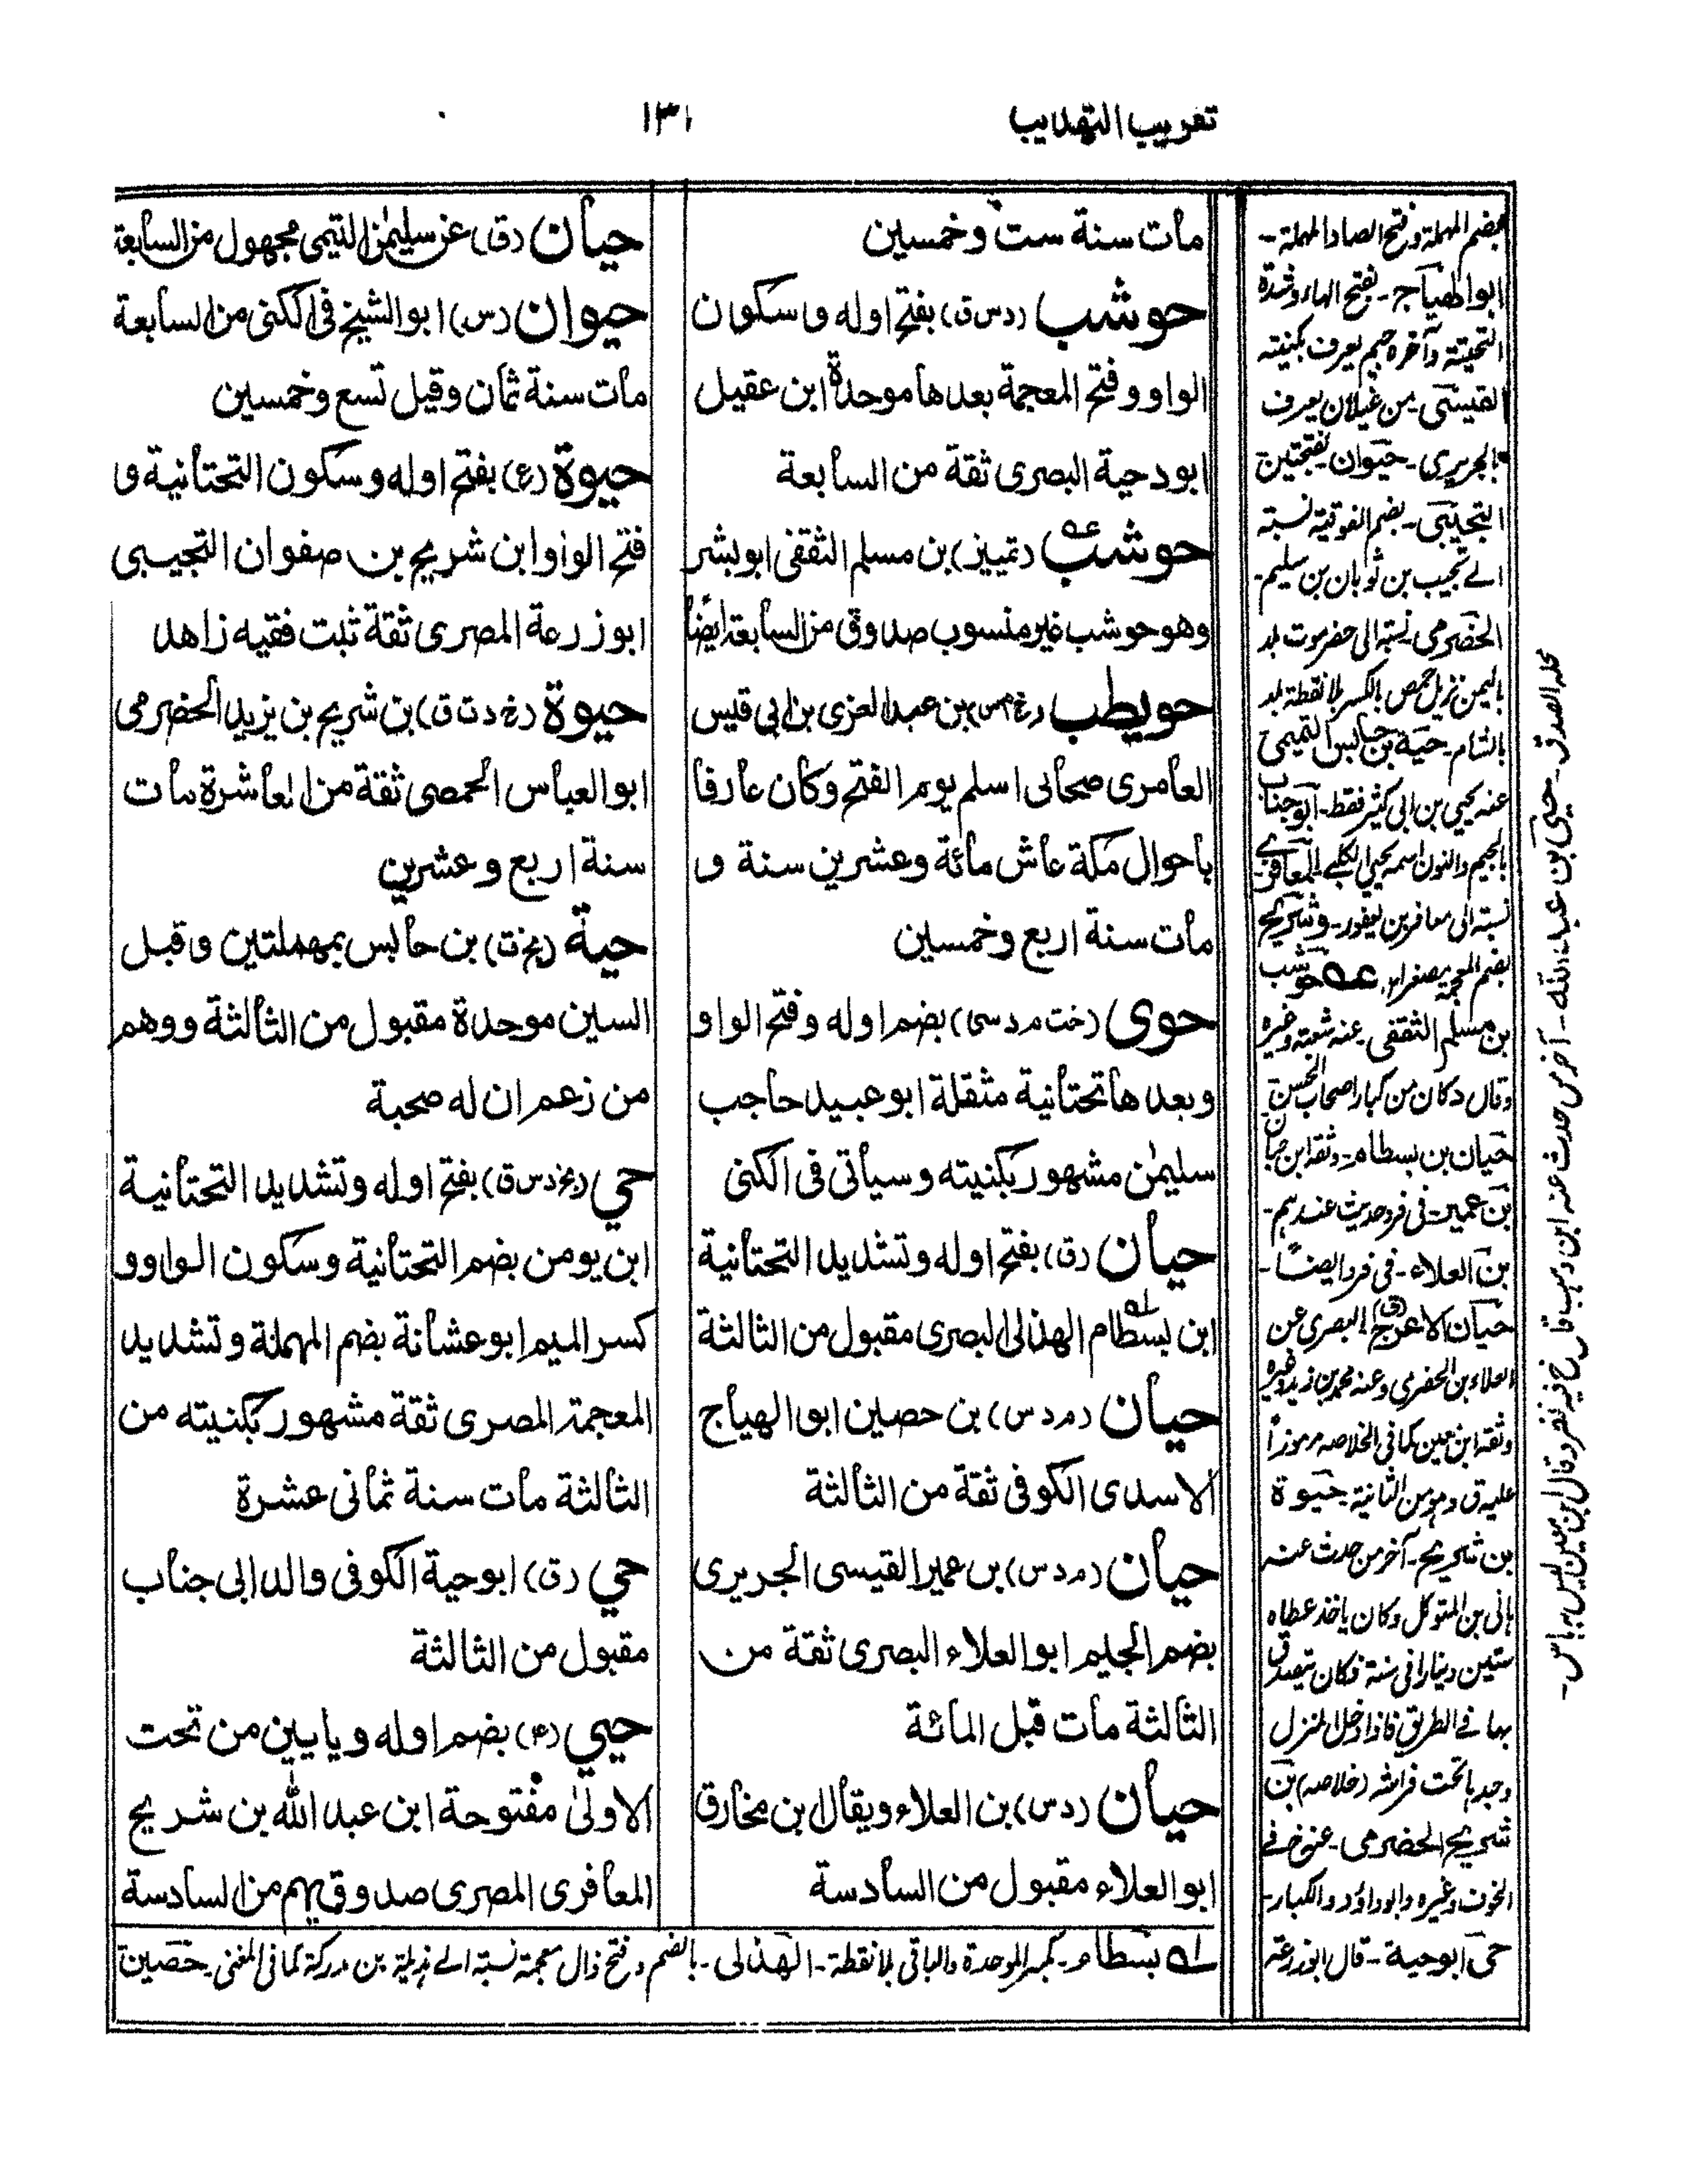 تقريب التهذيب
١٣١
مات سنة ست وخمسين
حوشب (دس ق) بفتح اوله و سكون
الواو وفتح المعجمة بعدها موحدة ابن عقيل
ابودحية البصرى ثقة من السابعة
حوشب (تمييز) بن مسلم الثقفى ابوبشر
وهو حوشب غير منسوب صدوق من السابعة ايضا
حويطب (خ م س) بن عبد العزى بن ابى قيس
العامرى صحابى اسلم يوم الفتح وكان عارفا
باحوال مكة عاش مائة وعشرين سنة و
مات سنة اربع وخمسين
حوى (خت م د سى) بضم اوله وفتح الواو
وبعدها تحتانية مثقلة ابوعبيد حاجب
سليمٰن مشهور بكنيته وسيأتى فى الكنى
حيان (ق) بفتح اوله وتشديد التحتانية
ابن بسطام الهذلى البصرى مقبول من الثالثة
حيان (م د س) بن حصين ابو الهياج
الاسدى الكوفى ثقة من الثالثة
حيان (م د س) بن عمير القيسى الجريرى
بضم الجيم ابو العلاء البصرى ثقة من
الثالثة مات قبل المائة
حيان (دس) بن العلاء ويقال بن مخارق
ابو العلاء مقبول من السادسة
حيان (ق) عن سليمٰن التيمى مجهول من السابعة
حيوان (دس) ابو الشيخ فى الكنى من السابعة
مات سنة ثمان وقيل تسع وخمسين
حيوة (ع) بفتح اوله وسكون التحتانية و
فتح الواو ابن شريح بن صفوان التجيبى
ابو زرعة المصرى ثقة ثبت فقيه زاهد
حيوة (خ د ت ق) بن شريح بن يزيد الحضرمى
ابو العباس الحمصى ثقة من العاشرة مات
سنة اربع وعشرين
حية (بخ ت) بن حابس بمهملتين وقبل
السين موحدة مقبول من الثالثة ووهم
من زعم ان له صحبة
حي (بخ دس ق) بفتح اوله وتشديد التحتانية
ابن يومن بضم التحتانية وسكون الواو و
كسر الميم ابو عشانة بضم المهملة وتشديد
المعجمة المصرى ثقة مشهور بكنيته من
الثالثة مات سنة ثمانى عشرة
حي (ق) ابوحية الكوفى والد ابى جناب
مقبول من الثالثة
حيي (٤) بضم اوله ويايين من تحت
الاولىٰ مفتوحة ابن عبد الله بن شريح
المعافرى المصرى صدوق يهم من السادسة
بسطام - بكسر الموحدة والباقى بلانقطة - الهذلى - بالضم وفتح ذال معجمة نسبة الے هذيلة بن مدركة كما فى المغنى - حصين
بضم المهملة وفتح الصاد المهملة -
ابو الهياج - بفتح الهاء وشدة
التحتية وآخره جيم يعرف بكنيته
القيسى - من غيلان يعرف
بالجريرى - حيوان بفتحتين
التجيبى - بضم الفوقية نسبة
الے تجيب بن ثوبان بن سليم -
الحضرمى - نسبة الى حضرموت بلد
باليمن نزيل حمص بالكسر بلانقطة بلد
بالشام - حية بن حابس التميمى
عنه يحيى بن ابى كثير فقط - ابو جناب
بالجيم والنون اسمه يحيى الكلبى - المعافرى
نسبة الى معافر بن يعفور - وشريح
بضم المعجمة مصغرا - حوشب
بن مسلم الثقفى - عنه شعبة وغيره
وقال وكان من كبار اصحاب الحسن
حيان بن بسطام - وثقه ابن حبان
بن عمير - فى فرد حديث عندهم -
بن العلاء - فى فرد ايضًا -
حيان الاعرج (ق) البصرى عن
العلاء بن الحضرمى وعنه محمد بن زيد وغيره
وثقه ابن معين كما فى الخلاصه مرموزاً
عليه ق وهو من الثانية - حيوة
بن شريح - آخر من حدث عنه
هانى بن المتوكل وكان ياخذ عطاه
ستين دينارا فى سنة فكان يتصدق
بها فے الطريق فاذا دخل المنزل
وجدها تحت فراشه (خلاصه) بن
شريح الحضرمى - عنه خ فے
الخوف وغيره وابوداؤد والكبار -
حى ابوحية - قال ابوزرعة
محله الصدق - حيى بن عبد الله - آخر من حدث عنه ابن وهب قال خ فيه نظر وقال ابن معين ليس به باس -